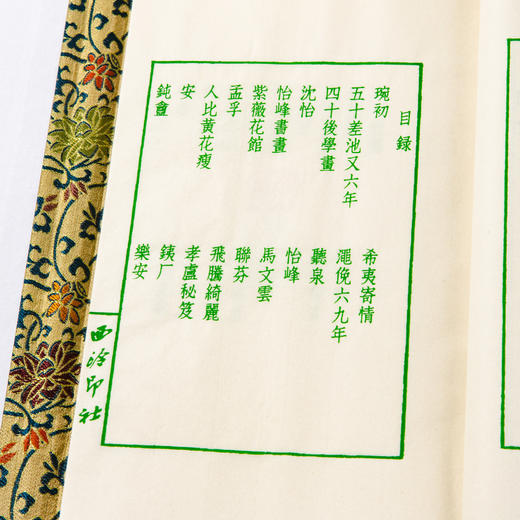 目录
琬初
五十差池又六年
四十後學畫
沈怡
怡峰書畫
紫薇花館
孟孚
人比黄花瘦
安
鈍盦
希夷寄情
澠俛六九年
聽泉
怡峰
馬文雲
聯芬
飛騰綺麗
孝盧秘笈
銕厂
樂安
西泠印社